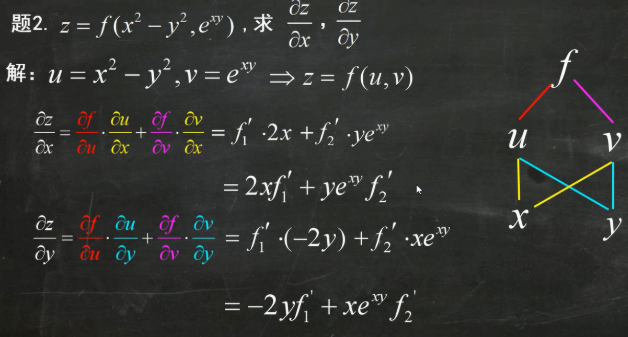 题2. z = f(x² − y², e^{xy}) , 求 ∂z/∂x , ∂z/∂y
解: u = x² − y², v = e^{xy} ⇒ z = f(u, v)
∂z/∂x = ∂f/∂u · ∂u/∂x + ∂f/∂v · ∂v/∂x = f₁′ · 2x + f₂′ · ye^{xy}
= 2xf₁′ + ye^{xy} f₂′
∂z/∂y = ∂f/∂u · ∂u/∂y + ∂f/∂v · ∂v/∂y = f₁′ · (−2y) + f₂′ · xe^{xy}
= −2yf₁′ + xe^{xy} f₂′
f
u v
x y